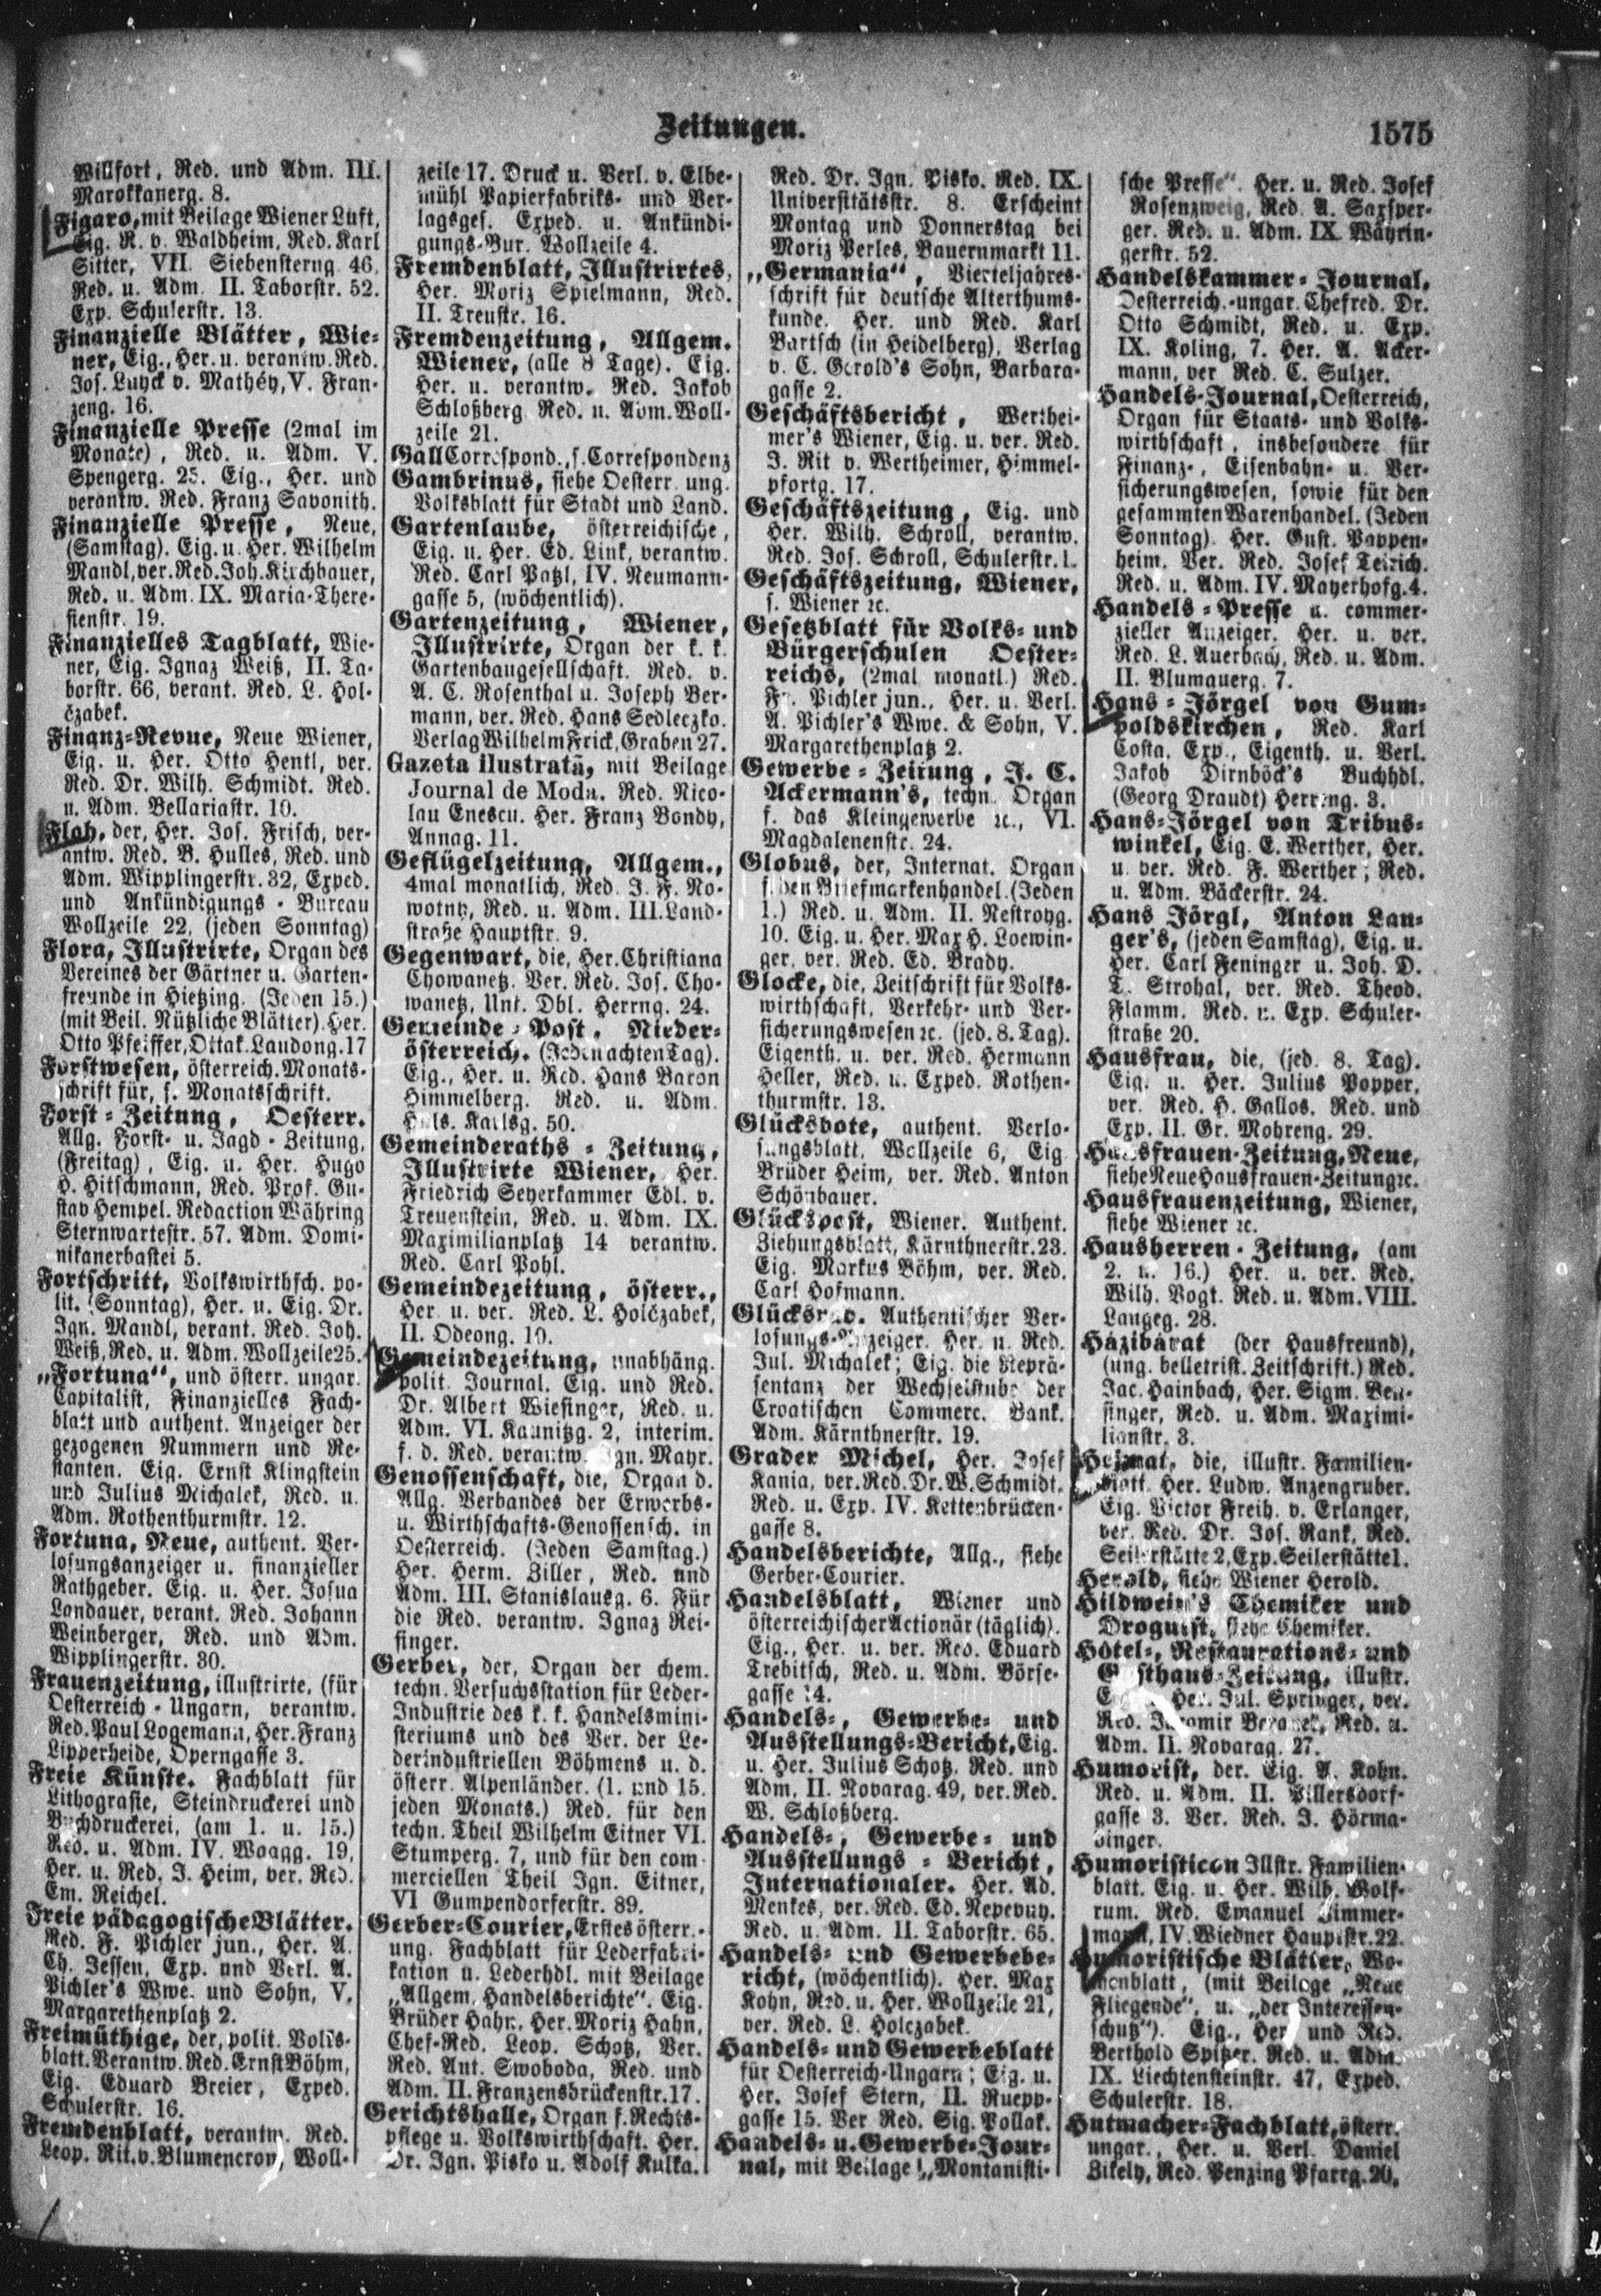 Zeitungen.
1575
Willfort, Red. und Adm. III.
Marokkanerg. 8.
Figaro, mit Beilage Wiener Luft,
Eig. R. v. Waldheim, Red. Karl
Sitter, VII. Siebensterng. 46,
Red. u. Adm. II. Taborstr. 52.
Exp. Schulerstr. 13.
Finanzielle Blätter, Wie-
ner, Eig., Her. u. verantw. Red.
Jos. Luyck v. Mathéy, V. Fran-
zeng. 16.
Finanzielle Presse (2mal im
Monate), Red. u. Adm. V.
Spengerg. 25. Eig., Her. und
verantw. Red. Franz Savonith.
Finanzielle Presse, Neue,
(Samstag). Eig. u. Her. Wilhelm
Mandl, ver. Red. Joh. Kirchbauer,
Red. u. Adm. IX. Maria-There-
sienstr. 19.
Finanzielles Tagblatt, Wie-
ner, Eig. Ignaz Weiß, II. Ta-
borstr. 66, verant. Red. L. Hol-
čzabek.
Finanz-Revue, Neue Wiener,
Eig. u. Her. Otto Hentl, ver.
Red. Dr. Wilh. Schmidt. Red.
u. Adm. Bellariastr. 10.
Floh, der, Her. Jos. Frisch, ver-
antw. Red. B. Hulles, Red. und
Adm. Wipplingerstr. 32, Exped.
und Ankündigungs-Bureau
Wollzeile 22, (jeden Sonntag)
Flora, Illustrirte, Organ des
Vereines der Gärtner u. Garten-
freunde in Hietzing. (Jeden 15.)
(mit Beil. Nützliche Blätter). Her.
Otto Pfeiffer, Ottak. Landong. 17
Forstwesen, österreich. Monats-
schrift für, s. Monatsschrift.
Forst-Zeitung, Oesterr.
Allg. Forst- u. Jagd-Zeitung,
(Freitag), Eig. u. Her. Hugo
H. Hitschmann, Red. Prof. Gu-
stav Hempel. Redaction Währing
Sternwartestr. 57. Adm. Domi-
nikanerbastei 5.
Fortschritt, Volkswirthsch. po-
lit. (Sonntag), Her. u. Eig. Dr.
Ign. Mandl, verant. Red. Joh.
Weiß, Red. u. Adm. Wollzeile 25.
„Fortuna“, und österr. ungar.
Capitalist, Finanzielles Fach-
blatt und authent. Anzeiger der
gezogenen Nummern und Re-
stanten. Eig. Ernst Klingstein
und Julius Michalek, Red. u.
Adm. Rothenthurmstr. 12.
Fortuna, Neue, authent. Ver-
losungsanzeiger u. finanzieller
Rathgeber. Eig. u. Her. Josua
Landauer, verant. Red. Johann
Weinberger, Red. und Adm.
Wipplingerstr. 30.
Frauenzeitung, illustrirte, (für
Oesterreich-Ungarn, verantw.
Red. Paul Logemann, Her. Franz
Lipperheide, Operngasse 3.
Freie Künste. Fachblatt für
Lithografie, Steindruckerei und
Buchdruckerei, (am 1. u. 15.)
Red. u. Adm. IV. Waagg. 19,
Her. u. Red. J. Heim, ver. Red.
Em. Reichel.
Freie pädagogische Blätter.
Red. F. Pichler jun., Her. A.
Ch. Jessen, Exp. und Verl. A.
Pichler's Wwe. und Sohn, V.
Margarethenplatz 2.
Freimüthige, der, polit. Volks-
blatt. Verantw. Red. Ernst Böhm,
Eig. Eduard Breier, Exped.
Schulerstr. 16.
Fremdenblatt, verantw. Red.
Leop. Rit. v. Blumencron, Woll-
zeile 17. Druck u. Verl. v. Elbe-
mühl Papierfabriks- und Ver-
lagsges. Exped. u. Ankündi-
gungs-Bur. Wollzeile 4.
Fremdenblatt, Illustrirtes,
Her. Moriz Spielmann, Red.
II. Treustr. 16.
Fremdenzeitung, Allgem.
Wiener, (alle 8 Tage). Eig.
Her. u. verantw. Red. Jakob
Schloßberg Red. u. Adm. Woll-
zeile 21.
Gall Correspond., s. Correspondenz
Gambrinus, siehe Oesterr. ung.
Volksblatt für Stadt und Land.
Gartenlaube, österreichische,
Eig. u. Her. Ed. Link, verantw.
Red. Carl Patzl, IV. Neumann-
gasse 5, (wöchentlich).
Gartenzeitung, Wiener,
Illustrirte, Organ der k. k.
Gartenbaugesellschaft. Red. v.
A. C. Rosenthal u. Joseph Ber-
mann, ver. Red. Hans Sedleczko.
Verlag Wilhelm Frick, Graben 27.
Gazeta ilustratā, mit Beilage
Journal de Moda. Red. Nico-
lau Enescu. Her. Franz Bondy,
Annag. 11.
Geflügelzeitung, Allgem.,
4mal monatlich, Red. J. F. No-
wotny, Red. u. Adm. III. Land-
straße Hauptstr. 9.
Gegenwart, die, Her. Christiana
Chowanetz. Ver. Red. Jos. Cho-
wanetz, Unt. Dbl. Herrng. 24.
Gemeinde-Post, Nieder-
österreich. (Jeden achten Tag).
Eig., Her. u. Red. Hans Baron
Himmelberg. Red. u. Adm.
Karlsg. 50.
Gemeinderaths-Zeitung,
Illustrirte Wiener, Her.
Friedrich Seyerkammer Edl. v.
Treuenstein, Red. u. Adm. IX.
Maximilianplatz 14 verantw.
Red. Carl Pohl.
Gemeindezeitung, österr.,
Her. u. ver. Red. L. Holčzabek,
II. Odeong. 10.
Gemeindezeitung, unabhäng.
polit. Journal. Eig. und Red.
Dr. Albert Wiesinger, Red. u.
Adm. VI. Kaunitzg. 2, interim.
f. d. Red. verantw. Ign. Mayr.
Genossenschaft, die, Organ d.
Allg. Verbandes der Erwerbs-
u. Wirthschafts-Genossensch. in
Oesterreich. (Jeden Samstag.)
Her. Herm. Ziller, Red. und
Adm. III. Stanislausg. 6. Für
die Red. verantw. Ignaz Rei-
singer.
Gerber, der, Organ der chem.
techn. Versuchsstation für Leder-
Industrie des k. k. Handelsmini-
steriums und des Ver. der Le-
derindustriellen Böhmens u. d.
österr. Alpenländer. (1. und 15.
jeden Monats.) Red. für den
techn. Theil Wilhelm Eitner VI.
Stumperg. 7, und für den com-
merciellen Theil Ign. Eitner,
VI Gumpendorferstr. 89.
Gerber-Courier, Erstes österr.-
ung. Fachblatt für Lederfabri-
kation u. Lederhdl. mit Beilage
„Allgem. Handelsberichte“. Eig.
Brüder Hahn, Her. Moriz Hahn,
Chef-Red. Leop. Schotz, Ver.
Red. Ant. Swoboda, Red. und
Adm. II. Franzensbrückenstr. 17.
Gerichtshalle, Organ f. Rechts-
pflege u. Volkswirthschaft. Her.
Dr. Ign. Pisko u. Adolf Kulka.
Red. Dr. Ign. Pisko. Red. IX.
Universitätsstr. 8. Erscheint
Montag und Donnerstag bei
Moriz Perles, Bauernmarkt 11.
„Germania“, Vierteljahres-
schrift für deutsche Alterthums-
kunde. Her. und Red. Karl
Bartsch (in Heidelberg), Verlag
v. C. Gerold's Sohn, Barbara-
gasse 2.
Geschäftsbericht, Werthei-
mer's Wiener, Eig. u. ver. Red.
J. Rit v. Wertheimer, Himmel-
pfortg. 17.
Geschäftszeitung, Eig. und
Her. Wilh. Schroll, verantw.
Red. Jos. Schroll, Schulerstr. 1.
Geschäftszeitung, Wiener,
s. Wiener ꝛc.
Gesetzblatt für Volks- und
Bürgerschulen Oester-
reichs, (2mal monatl.) Red.
Fr. Pichler jun., Her. u. Verl.
A. Pichler's Wwe. & Sohn, V.
Margarethenplatz 2.
Gewerbe-Zeitung, J. C.
Ackermann's, techn. Organ
f. das Kleingewerbe ꝛc., VI.
Magdalenenstr. 24.
Globus, der, Internat. Organ
f. den Briefmarkenhandel. (Jeden
1.) Red. u. Adm. II. Nestroyg.
10. Eig. u. Her. Max H. Loewin-
ger, ver. Red. Ed. Brady.
Glocke, die, Zeitschrift für Volks-
wirthschaft, Verkehr- und Ver-
sicherungswesen ꝛc. (jed. 8. Tag).
Eigenth. u. ver. Red. Hermann
Heller, Red. u. Exped. Rothen-
thurmstr. 13.
Glücksbote, authent. Verlo-
sungsblatt, Wollzeile 6, Eig.
Brüder Heim, ver. Red. Anton
Schönbauer.
Glückspost, Wiener. Authent.
Ziehungsblatt, Kärnthnerstr. 23.
Eig. Markus Böhm, ver. Red.
Carl Hofmann.
Glücksrad. Authentischer Ver-
losungs-Anzeiger. Her. u. Red.
Jul. Michalek; Eig. die Reprä-
sentanz der Wechselstube der
Croatischen Commerc. Bank.
Adm. Kärnthnerstr. 19.
Grader Michel, Her. Josef
Kania, ver. Red. Dr. W. Schmidt.
Red. u. Exp. IV. Kettenbrücken-
gasse 8.
Handelsberichte, Allg., siehe
Gerber-Courier.
Handelsblatt, Wiener und
österreichischer Actionär (täglich).
Eig., Her. u. ver. Red. Eduard
Trebitsch, Red. u. Adm. Börse-
gasse 14.
Handels-, Gewerbe- und
Ausstellungs-Bericht, Eig.
u. Her. Julius Schotz, Red. und
Adm. II. Novarag. 49, ver. Red.
W. Schloßberg.
Handels-, Gewerbe- und
Ausstellungs-Bericht,
Internationaler. Her. Ad.
Menkes, ver. Red. Ed. Nepevny.
Red. u. Adm. II. Taborstr. 65.
Handels- und Gewerbebe-
richt, (wöchentlich). Her. Max
Kohn, Red. u. Her. Wollzeile 21,
ver. Red. L. Holczabek.
Handels- und Gewerbeblatt
für Oesterreich-Ungarn; Eig. u.
Her. Josef Stern, II. Ruepp-
gasse 15. Ver Red. Sig. Pollak.
Handels- u. Gewerbe-Jour-
nal, mit Beilage „Montanisti-
sche Presse“. Her. u. Red. Josef
Rosenzweig, Red. A. Saxsper-
ger. Red. u. Adm. IX. Währin-
gerstr. 52.
Handelskammer-Journal,
Oesterreich.-ungar. Chefred. Dr.
Otto Schmidt, Red. u. Exp.
IX. Koling, 7. Her. A. Acker-
mann, ver Red. C. Sulzer.
Handels-Journal, Oesterreich,
Organ für Staats- und Volks-
wirthschaft, insbesondere für
Finanz-, Eisenbahn- u. Ver-
sicherungswesen, sowie für den
gesammten Warenhandel. (Jeden
Sonntag). Her. Gust. Pappen-
heim. Ver. Red. Josef Teirich.
Red. u. Adm. IV. Mayerhofg. 4.
Handels-Presse u. commer-
zieller Anzeiger. Her. u. ver.
Red. L. Auerbach, Red. u. Adm.
II. Blumauerg. 7.
Hans-Jörgel von Gum-
poldskirchen, Red. Karl
Costa. Exp., Eigenth. u. Verl.
Jakob Dirnböck's Buchhdl.
(Georg Draudt) Herreng. 3.
Hans-Jörgel von Tribus-
winkel, Eig. E. Werther, Her.
u. ver. Red. F. Werther; Red.
u. Adm. Bäckerstr. 24.
Hans Jörgl, Anton Lan-
ger's, (jeden Samstag), Eig. u.
Her. Carl Feninger u. Joh. D.
T. Strohal, ver. Red. Theod.
Flamm. Red. u. Exp. Schuler-
straße 20.
Hausfrau, die, (jed. 8. Tag).
Eig. u. Her. Julius Popper,
ver. Red. H. Gallos. Red. und
Exp. II. Gr. Mohreng. 29.
Hausfrauen-Zeitung, Neue,
siehe Neue Hausfrauen-Zeitung ꝛc.
Hausfrauenzeitung, Wiener,
siehe Wiener ꝛc.
Hausherren-Zeitung, (am
2. u. 16.) Her. u. ver. Red.
Wilh. Vogt. Red. u. Adm. VIII.
Langeg. 28.
Házibárat (der Hausfreund),
(ung. belletrist. Zeitschrift.) Red.
Jac. Hainbach, Her. Sigm. Ben-
singer, Red. u. Adm. Maximi-
lianstr. 3.
Heimat, die, illustr. Familien-
blatt. Her. Ludw. Anzengruber.
Eig. Victor Freih. v. Erlanger,
ver. Red. Dr. Jos. Rank, Red.
Seilerstätte 2, Exp. Seilerstätte 1.
Herold, siehe Wiener Herold.
Hildwein's Chemiker und
Droguist, siehe Chemiker.
Hôtel-, Restaurations- und
Gasthaus-Zeitung, illustr.
Her. Jul. Springer, ver.
Red. Jaromir Red. u.
Adm. II. Novarag. 27.
Humorist, der. Eig. A. Kohn.
Red. u. Adm. II. Pillersdorf-
gasse 3. Ver. Red. J. Hörma-
dinger.
Humoristicon Illstr. Familien-
blatt. Eig. u. Her. Wilh. Wolf-
rum. Red. Emanuel Zimmer-
mann, IV. Wiedner Hauptstr. 22.
Humoristische Blätter, Wo-
chenblatt, (mit Beilage „Neue
Fliegende“, u. „der Interessen-
schutz“). Eig., Her. und Red.
Berthold Spitzer. Red. u. Adm.
IX. Liechtensteinstr. 47, Exped.
Schulerstr. 18.
Hutmacher-Fachblatt, österr.
ungar., Her. u. Verl. Daniel
Zikely, Red. Penzing Pfarrg. 20,